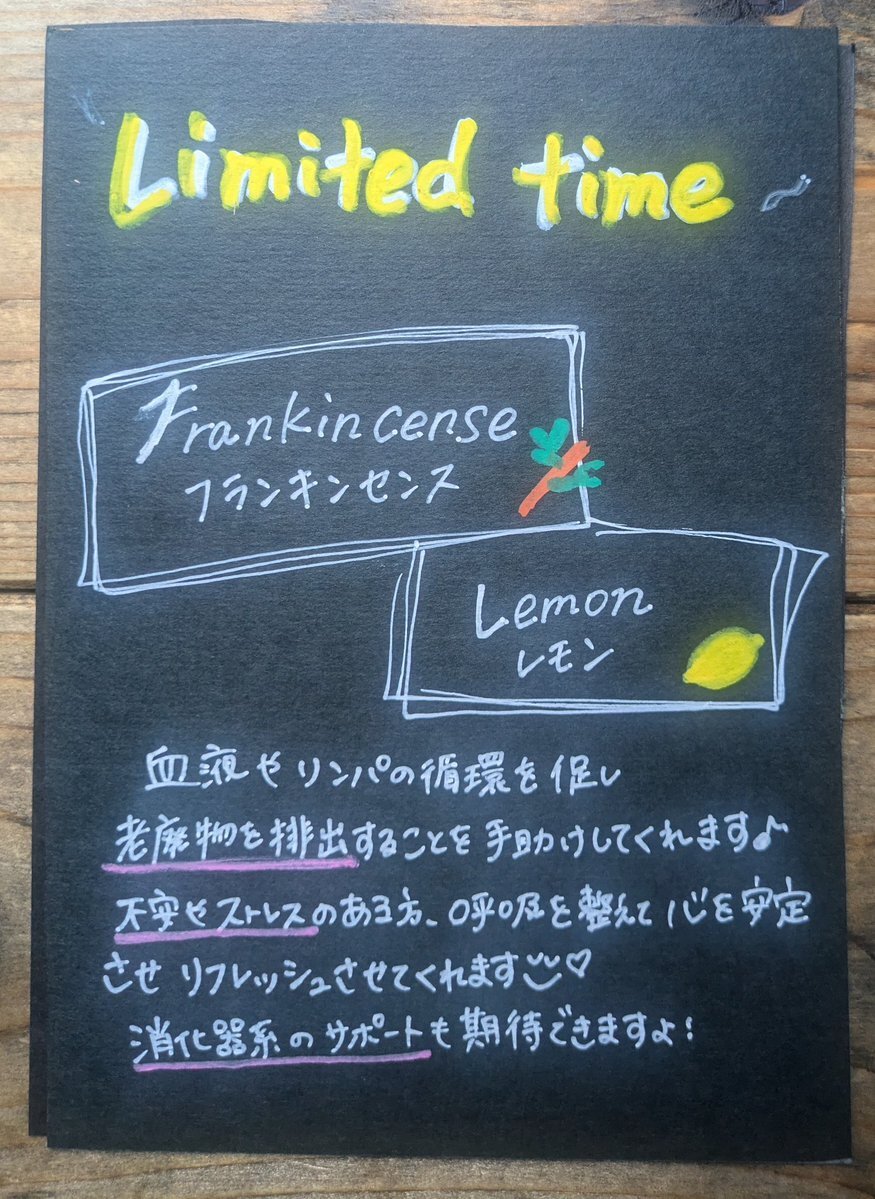 Limited time
Frankincense
フランキンセンス
Lemon
レモン
血液やリンパの循環を促し
老廃物を排出することを手助けしてくれます♪
不安やストレスのある方、呼吸を整えて心を安定
させリフレッシュさせてくれます♡
消化器系のサポートも期待できますよ!